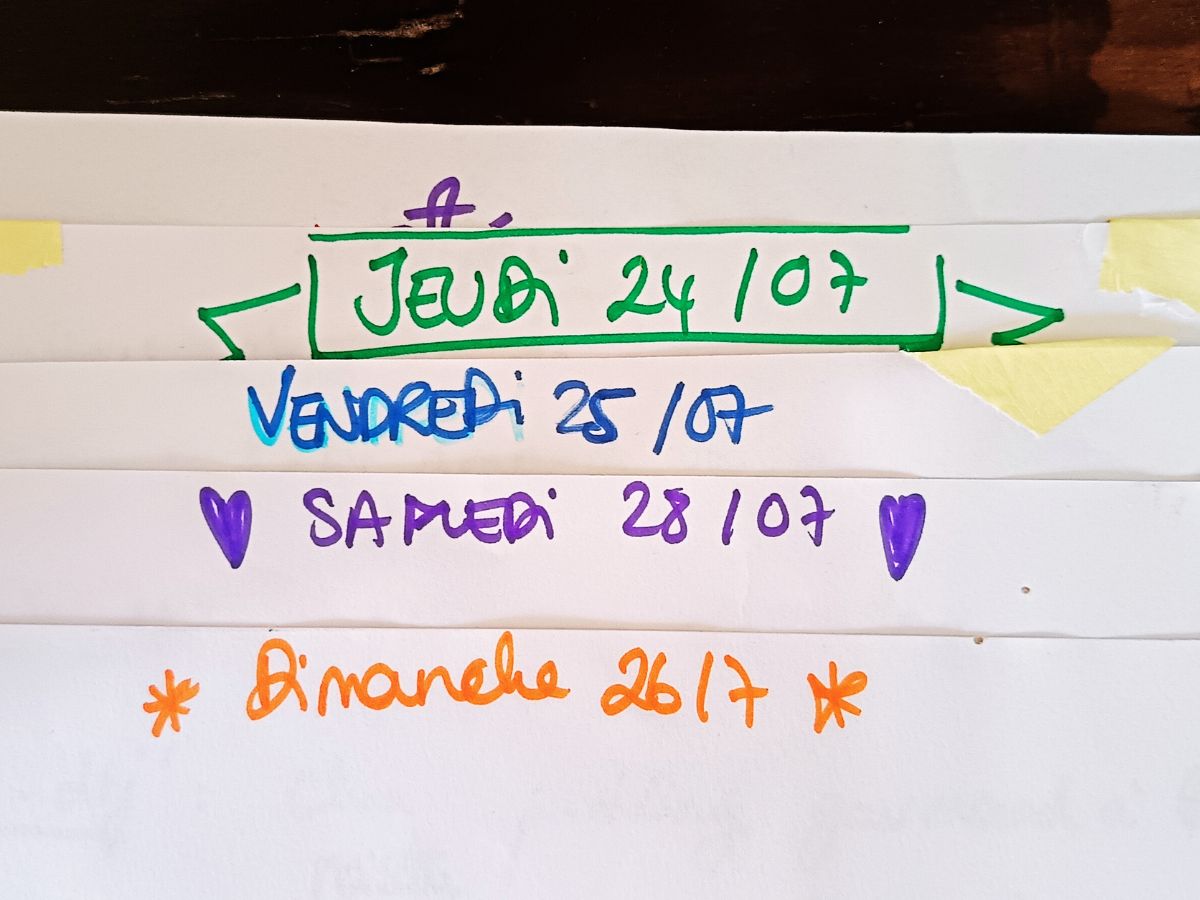 JEUDi 24/07
VENDREDi 25/07
SAMEDi 28/07
Dimanche 26/7